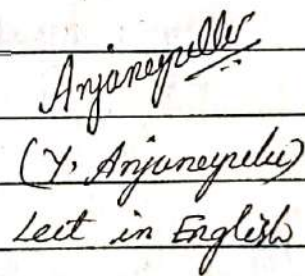 Anjaneyulu
(Y. Anjaneyulu)
Lect in English